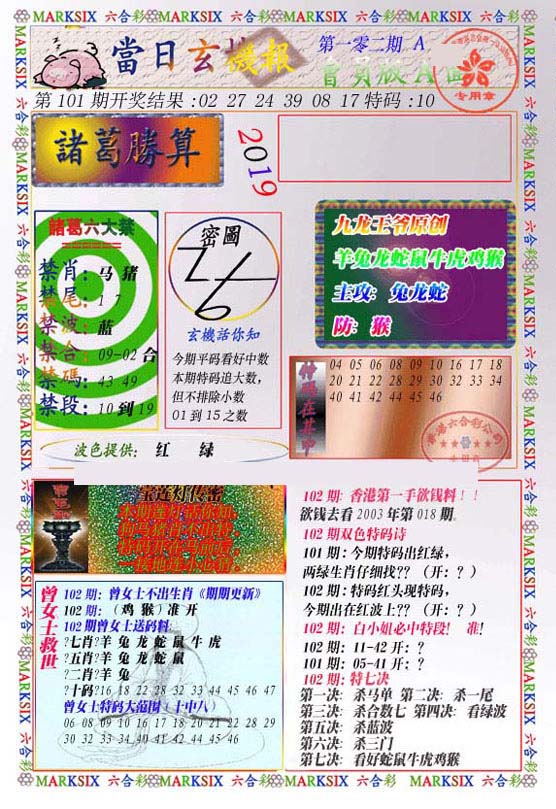 MARKSIX 六合彩 MARKSIX 六合彩 MARKSIX 六合彩 MARKSIX 六合彩
當日玄機報
第一零二期 A
會員版A面
专用章
第101期开奖结果:02 27 24 39 08 17特码:10
諸葛勝算
2019
諸葛六大禁
禁肖:马 猪
禁尾:1 7
禁波:蓝
禁合:09-02 合
禁碼:43 49
禁段:10 到19
密圖
玄機話你知
今期平码看好中数
本期特码追大数,
但不排除小数
01到15之数
九龙王爷原创
羊兔龙蛇鼠牛虎鸡猴
主攻: 兔龙蛇
防: 猴
特碼在其中
04 05 06 08 09 10 16 17 18
20 21 22 28 29 30 32 33 34
40 41 42 44 45 46
波色提供: 红 绿
宝莲灯传密
曾女士救世
102 期: 曾女士不出生肖《期期更新》
102 期: (鸡 猴) 准 开
102 期曾女士送码料:
?七肖?羊 兔 龙 蛇 鼠 牛 虎
?五肖?羊 兔 龙 蛇 鼠
?二肖?羊 兔
?十码?16 18 22 28 32 33 44 45 46 47
曾女士特码大范围(十中八)
06 08 09 10 16 17 18 20 21 22 28 29
30 32 33 34 40 41 42 44 45 46
102 期: 香港第一手欲钱料!!
欲钱去看 2003 年第 018 期。
102 期双色特码诗
101 期: 今期特码出红绿,
两绿生肖仔细找??(开:?)
102 期: 特码红头现特码,
今期出在红波上??(开:?)
102 期: 白小姐必中特段! 准!
102 期: 11-42 开:?
101 期: 05-41 开:?
102 期: 特七决
第一决: 杀马单 第二决: 杀一尾
第三决: 杀合数七 第四决: 看绿波
第五决: 杀蓝波
第六决: 杀三门
第七决: 看好蛇鼠牛虎鸡猴
MARKSIX 六合彩 MARKSIX 六合彩 MARKSIX 六合彩 MARKSIX 六合彩